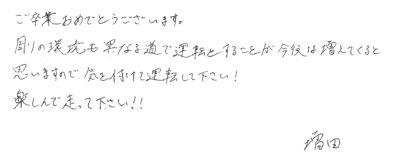 ご卒業おめでとうございます。
周りの環境も異なる道で運転をすることが今後は増えてくると
思いますので、気を付けて運転して下さい！
楽しんで走って下さい！！
増田